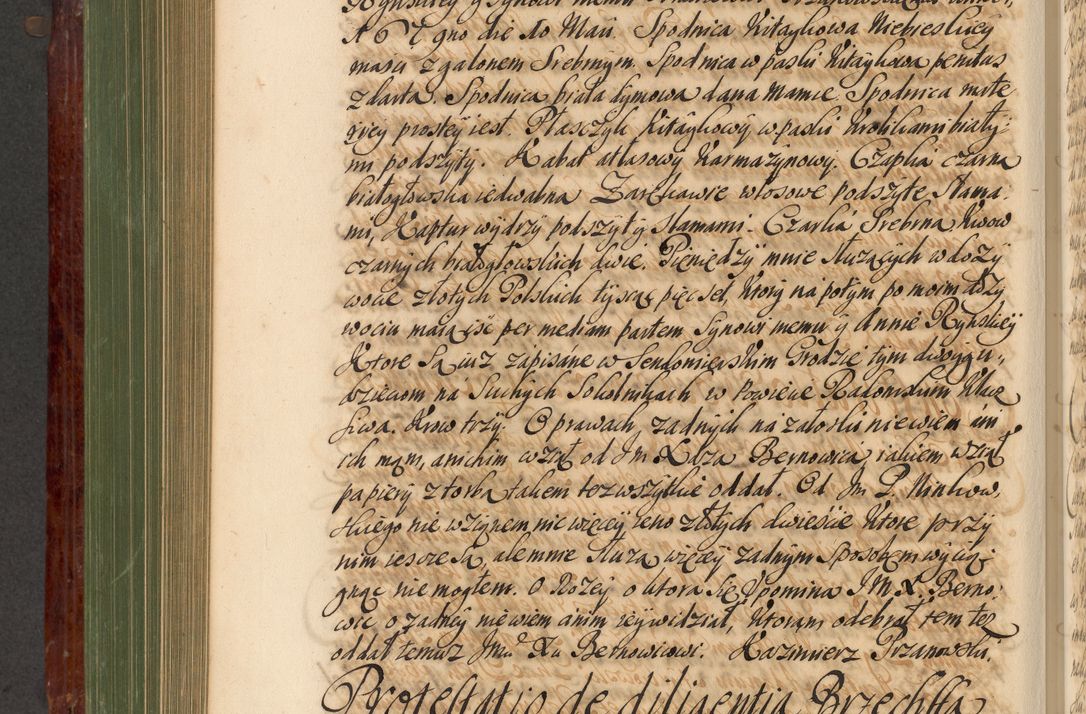 A 6 7 gno die 10 Maii. Spodnica Kitaykowa Niebieskiey
maści z galonem Srebrnym. Spodnica w paski Kitaykowa penitus
zdarta. Spodnica biała dymowa dana Mamce. Spodnica mate
ryey prostey iest. Płasczyk Kitaykowy w paski Krolikami białÿ-
mi podszyty. Kabat atłasowy Karmazynowy. Czapka czarna
białogłowska iedwabna Zarękawie włosowe podszyte Łama
mi, Kaptur wydrzy podszyty łamami. Czarka Srebrna, Krow
czarnych białogłowskich dwie. Pieniędzy mnie służących w dozy
wocie złotych Polskich tysiąc pięcset, Ktory na potym po moim dozy
wociu maią iść per mediam partem Synowi memu y Annie Ryhskiey
Ktore są iuz zapisane w Sendomierskim Grodzie tym dwoygu
dzieciom na Suchych Sokolnikach w Powiecie Radomskim
Krow trzy. O prawach, zadnych na załoski nie wiem ani
ich mąm, anichim wziął od Jm Xdza Bernowica, iakiem wziął
papiery z torbą takiem tez wszytkie oddał. Od Jm P. Minkow,
skiego nie wziąnem nic więcey ieno złotych dwieście Ktore przy
nim ieszcze są, ale mnie słuza więcey zadnym sposobem wyciąg
gnąc nie mogłem. O Rozey o ktora się upomina JM X. Berno,
wic o zadney nie wiem anim iey widział, Ktoram odebrał tem tez
oddał temuz Jmu Xu Bernowicowi. Kazimierz Trzanowski.
Protestatio de diligentia Brzechffa